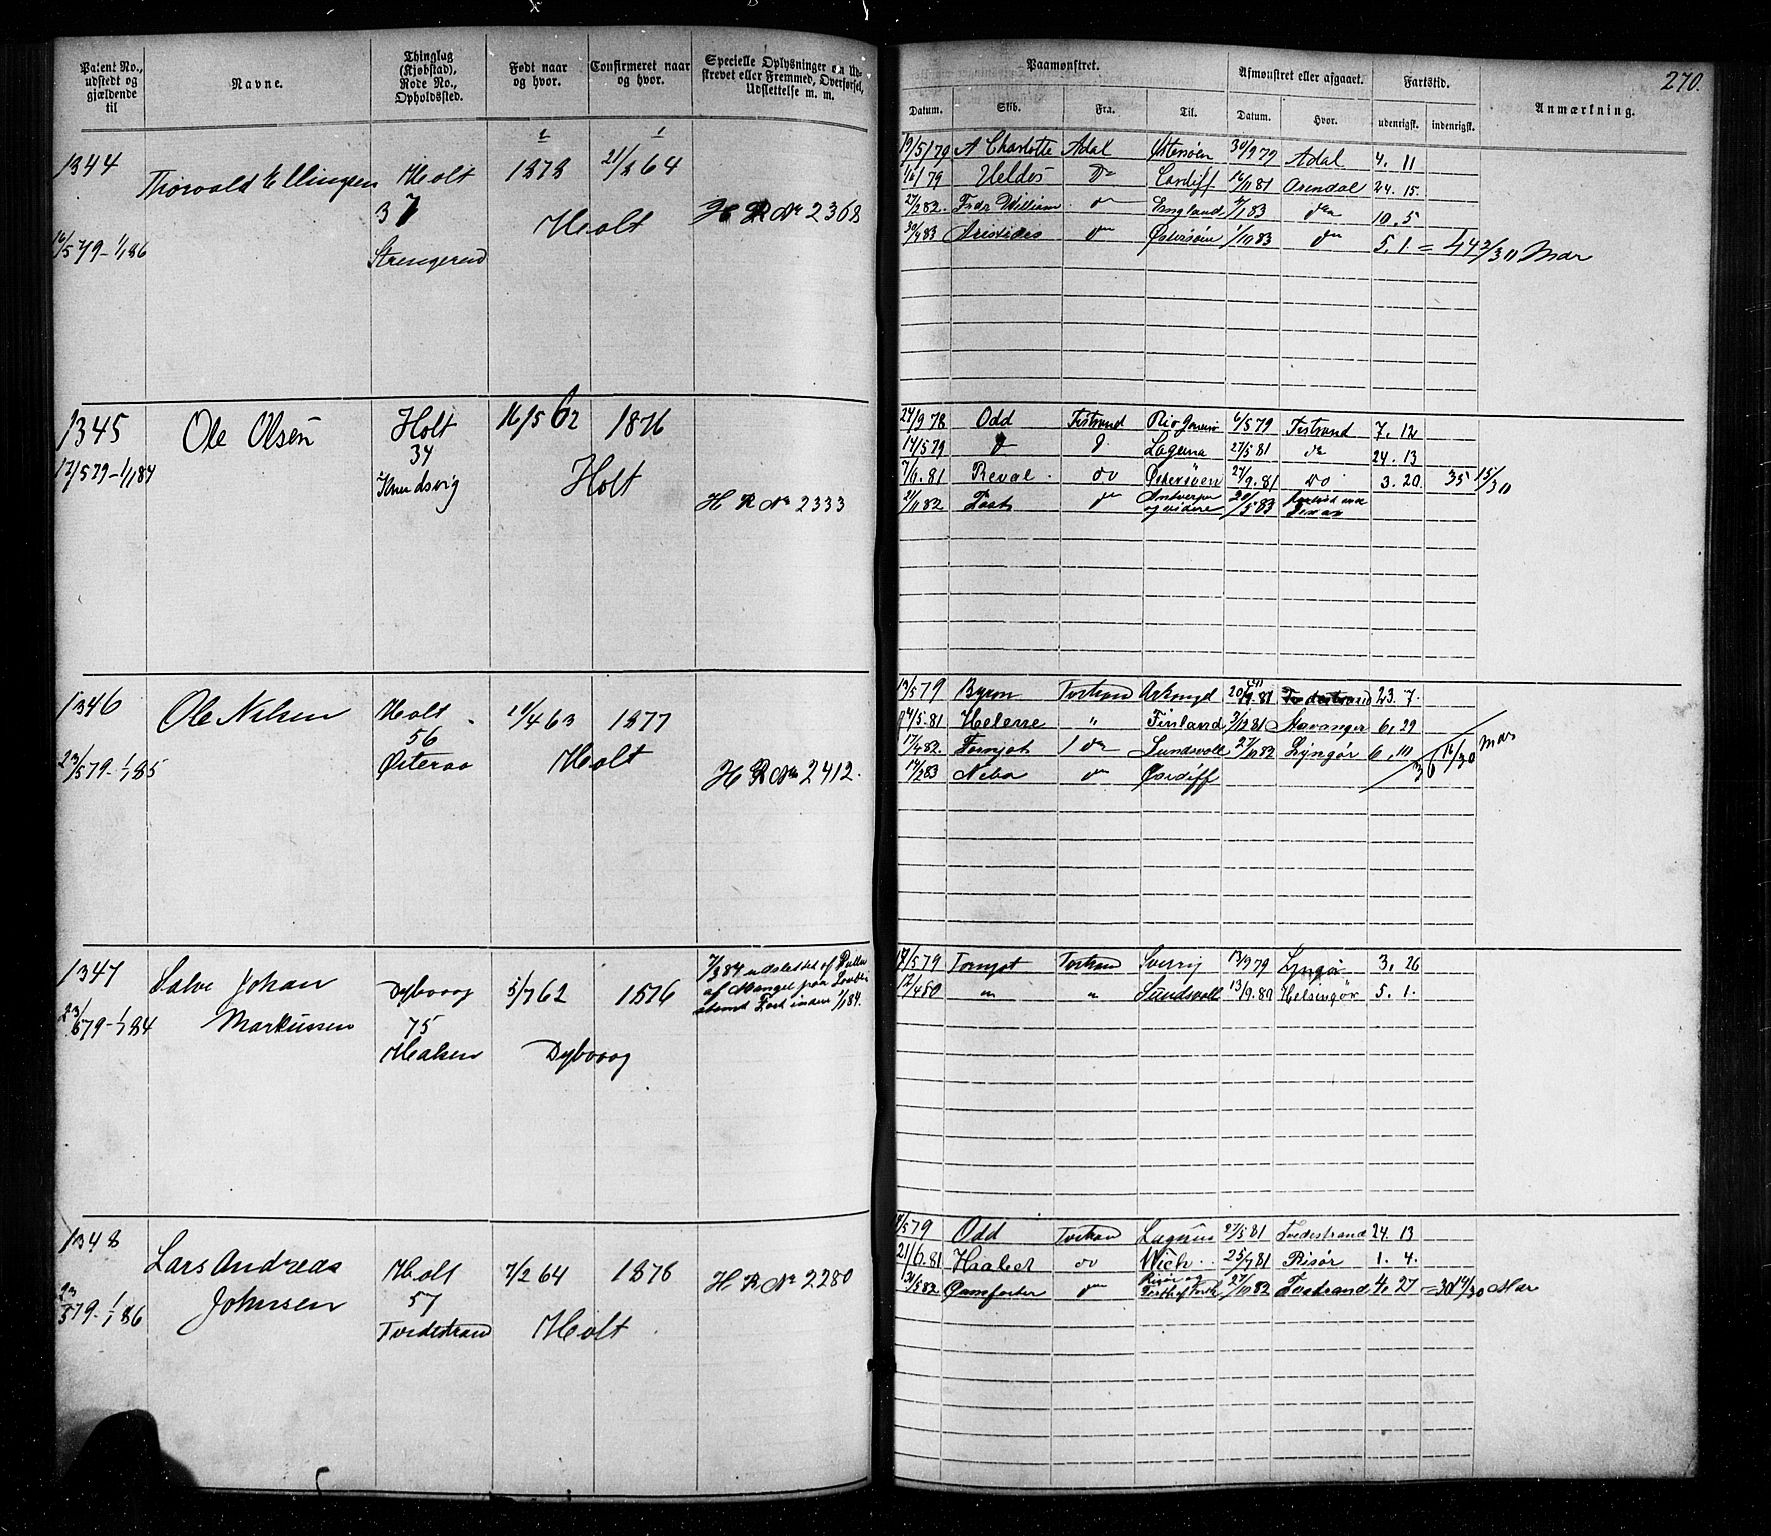 Patent No., udstedt og gjældende til
Navne.
Thinglag (Kjøbstad), Rode No., Opholdssted.
Født naar og hvor.
Confirmeret naar og hvor.
Specielle Oplysninger om Udskrevet eller Fremmed, Overførsel, Udslettelse m. m.
Paamønstret.
Afmønstret eller afgaaet.
Fartstid.
Anmærkning.
270.
Datum. Skib. Fra. Til. Datum. Hvor. udenrigsk. indenrigsk.
1344 Thorvald Ellingsen Holt 1878 21/2 64
37 Holt H R No 2368
16/5 79 - 1/1 86 Strengereid
19/5 79 A Charlotte Adal Østersøen 30/9 79 Adal 4. 11
Do Cardiff 16/11 81 Arendal 24. 15.
27/2 82. Fredr William do England 4/1 83 do 10. 5
30/4 83 Aristides do Østersøen 1/10 83 do 5. 1 = 44 2/30 Mdr
1345 Ole Olsen Holt 16/5 62 1876
34
17/5 79 - 1/1 84 Knudsvig Holt
H R No 2333
24/9 78 Odd Tvstrand Rio Janeiro 6/5 79 Tvstrand 7. 12
14/5 79 Laguna 27/5 81 do 24. 13
7/6. 81 Reval do Østersøen 27/9. 81 do 3. 20 35 15/30
2/11 82 do Antverpen og videre 20/5 83
1346 Ole Nilsen Holt 10/4 63 1877
56 Holt
23/5 79 - 1/1 85 Østeraa H R No 2412.
13/5 79 Byron Tvstrand 81 Tvedestrand 23. 7.
14/5. 81 Helene " Finland 3/12 81 Stavanger 6. 29
17/4 82. Fornjot do Sundsvall 27/11 82 Lyngør 6. 10 36 16/30 Mdr
14/2 83 do Cardiff
1347 Salve Johan Markussen Dybvaag 5/7 62 1876
75
23/5 79 - 1/1 84 Dybvaag
7/3 84 udslettet af Rullen af Mangel paa Lovbestemt Fart inden 1/1 84.
14/5 79 Fornjot Tvstrand Sverrig 13/9 79 Lyngør 3. 26
12/4 80 " " Sundsvall 13/9. 80 Helsingør 5. 1.
1348 Lars Andreas Johnsen Holt 7/2 64 1878 H R No 2280
57
23/5 79 - 1/1 86 Tvedestrand Holt
14/5 79 Odd Tvstrand Laguna 27/5 81 Tvedestrand 24. 13
21/6. 81 Haabet do Wick. 25/7 81 Risør 1. 4.
31/5 82 do Risør og 27/10 82 Tvstrand 4. 27 = 30 14/30 Mdr